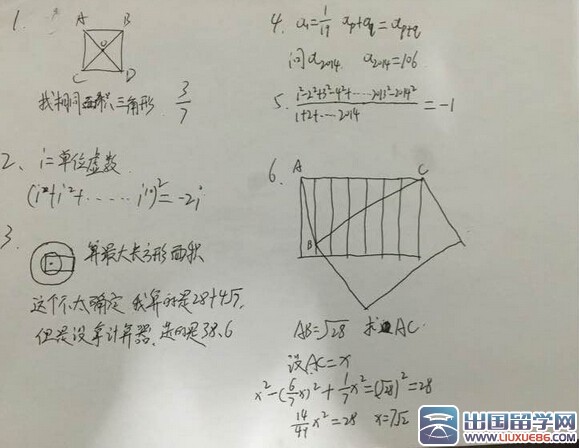 1.
A B
O
C D
找相同面积三角形 3/7
2、i=单位虚数
(i⁰+i²+.....i¹⁰)²=-2i
3.
算最大长方形面积
这个不太确定 我算的是28+4√7
但是没拿计算器,选的是38.6
4. a₁=1/19 aₚ+a_q=aₚ₊q
问a₂₀₁₄ a₂₀₁₄=106
5. (1²-2²+3²-4²+.....2013²-2014²)/(1+2+....2014)=-1
6.
A C
B
AB=√28 求AC
设AC=x
x²-(6/7x)²+1/7x²=(√28)²=28
14/49x²=28 x=7√2
出国留学网
www.liuxue86.com